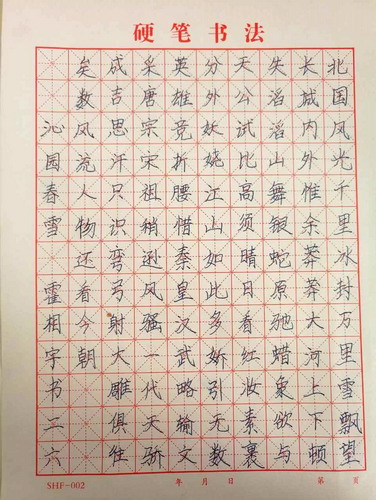 硬笔书法
北国风光千里冰封万里雪飘望
长城内外惟余莽莽大河上下顿
失滔滔山舞银蛇原驰蜡象欲与
天公试比高须晴日看红妆素裹
分外妖娆江山如此多娇引无数
英雄竞折腰惜秦皇汉武略输文
采唐宗宋祖稍逊风骚一代天骄
成吉思汗只识弯弓射大雕俱往
矣数风流人物还看今朝
沁园春雪 霍相宇书
SHF-002 年 月 日 第 页